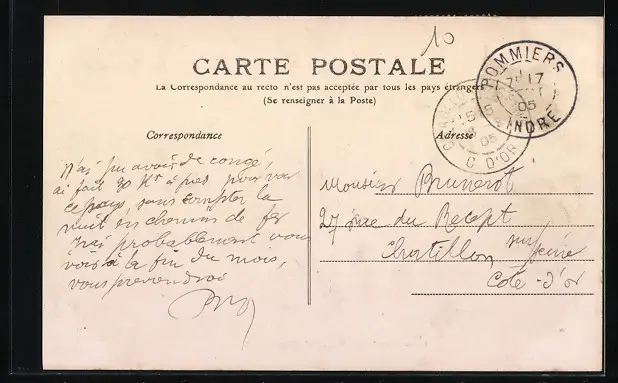 10
CARTE POSTALE
La Correspondance au recto n'est pas acceptée par tous les pays étrangers
(Se renseigner à la Poste)
POMMIERS
17
05
INDRE
05
C D'OR
Correspondance
Adresse
N'ai pu avoir de congé,
ai fait 90 Km à pied pour voir
ce pays, sans compter la
nuit en chemin de fer
J'irai probablement vous
voir à la fin du mois,
vous préviendrai
Monsieur Brunerot
27 rue du Recept
Chatillon sur Seine
Côte-d'or